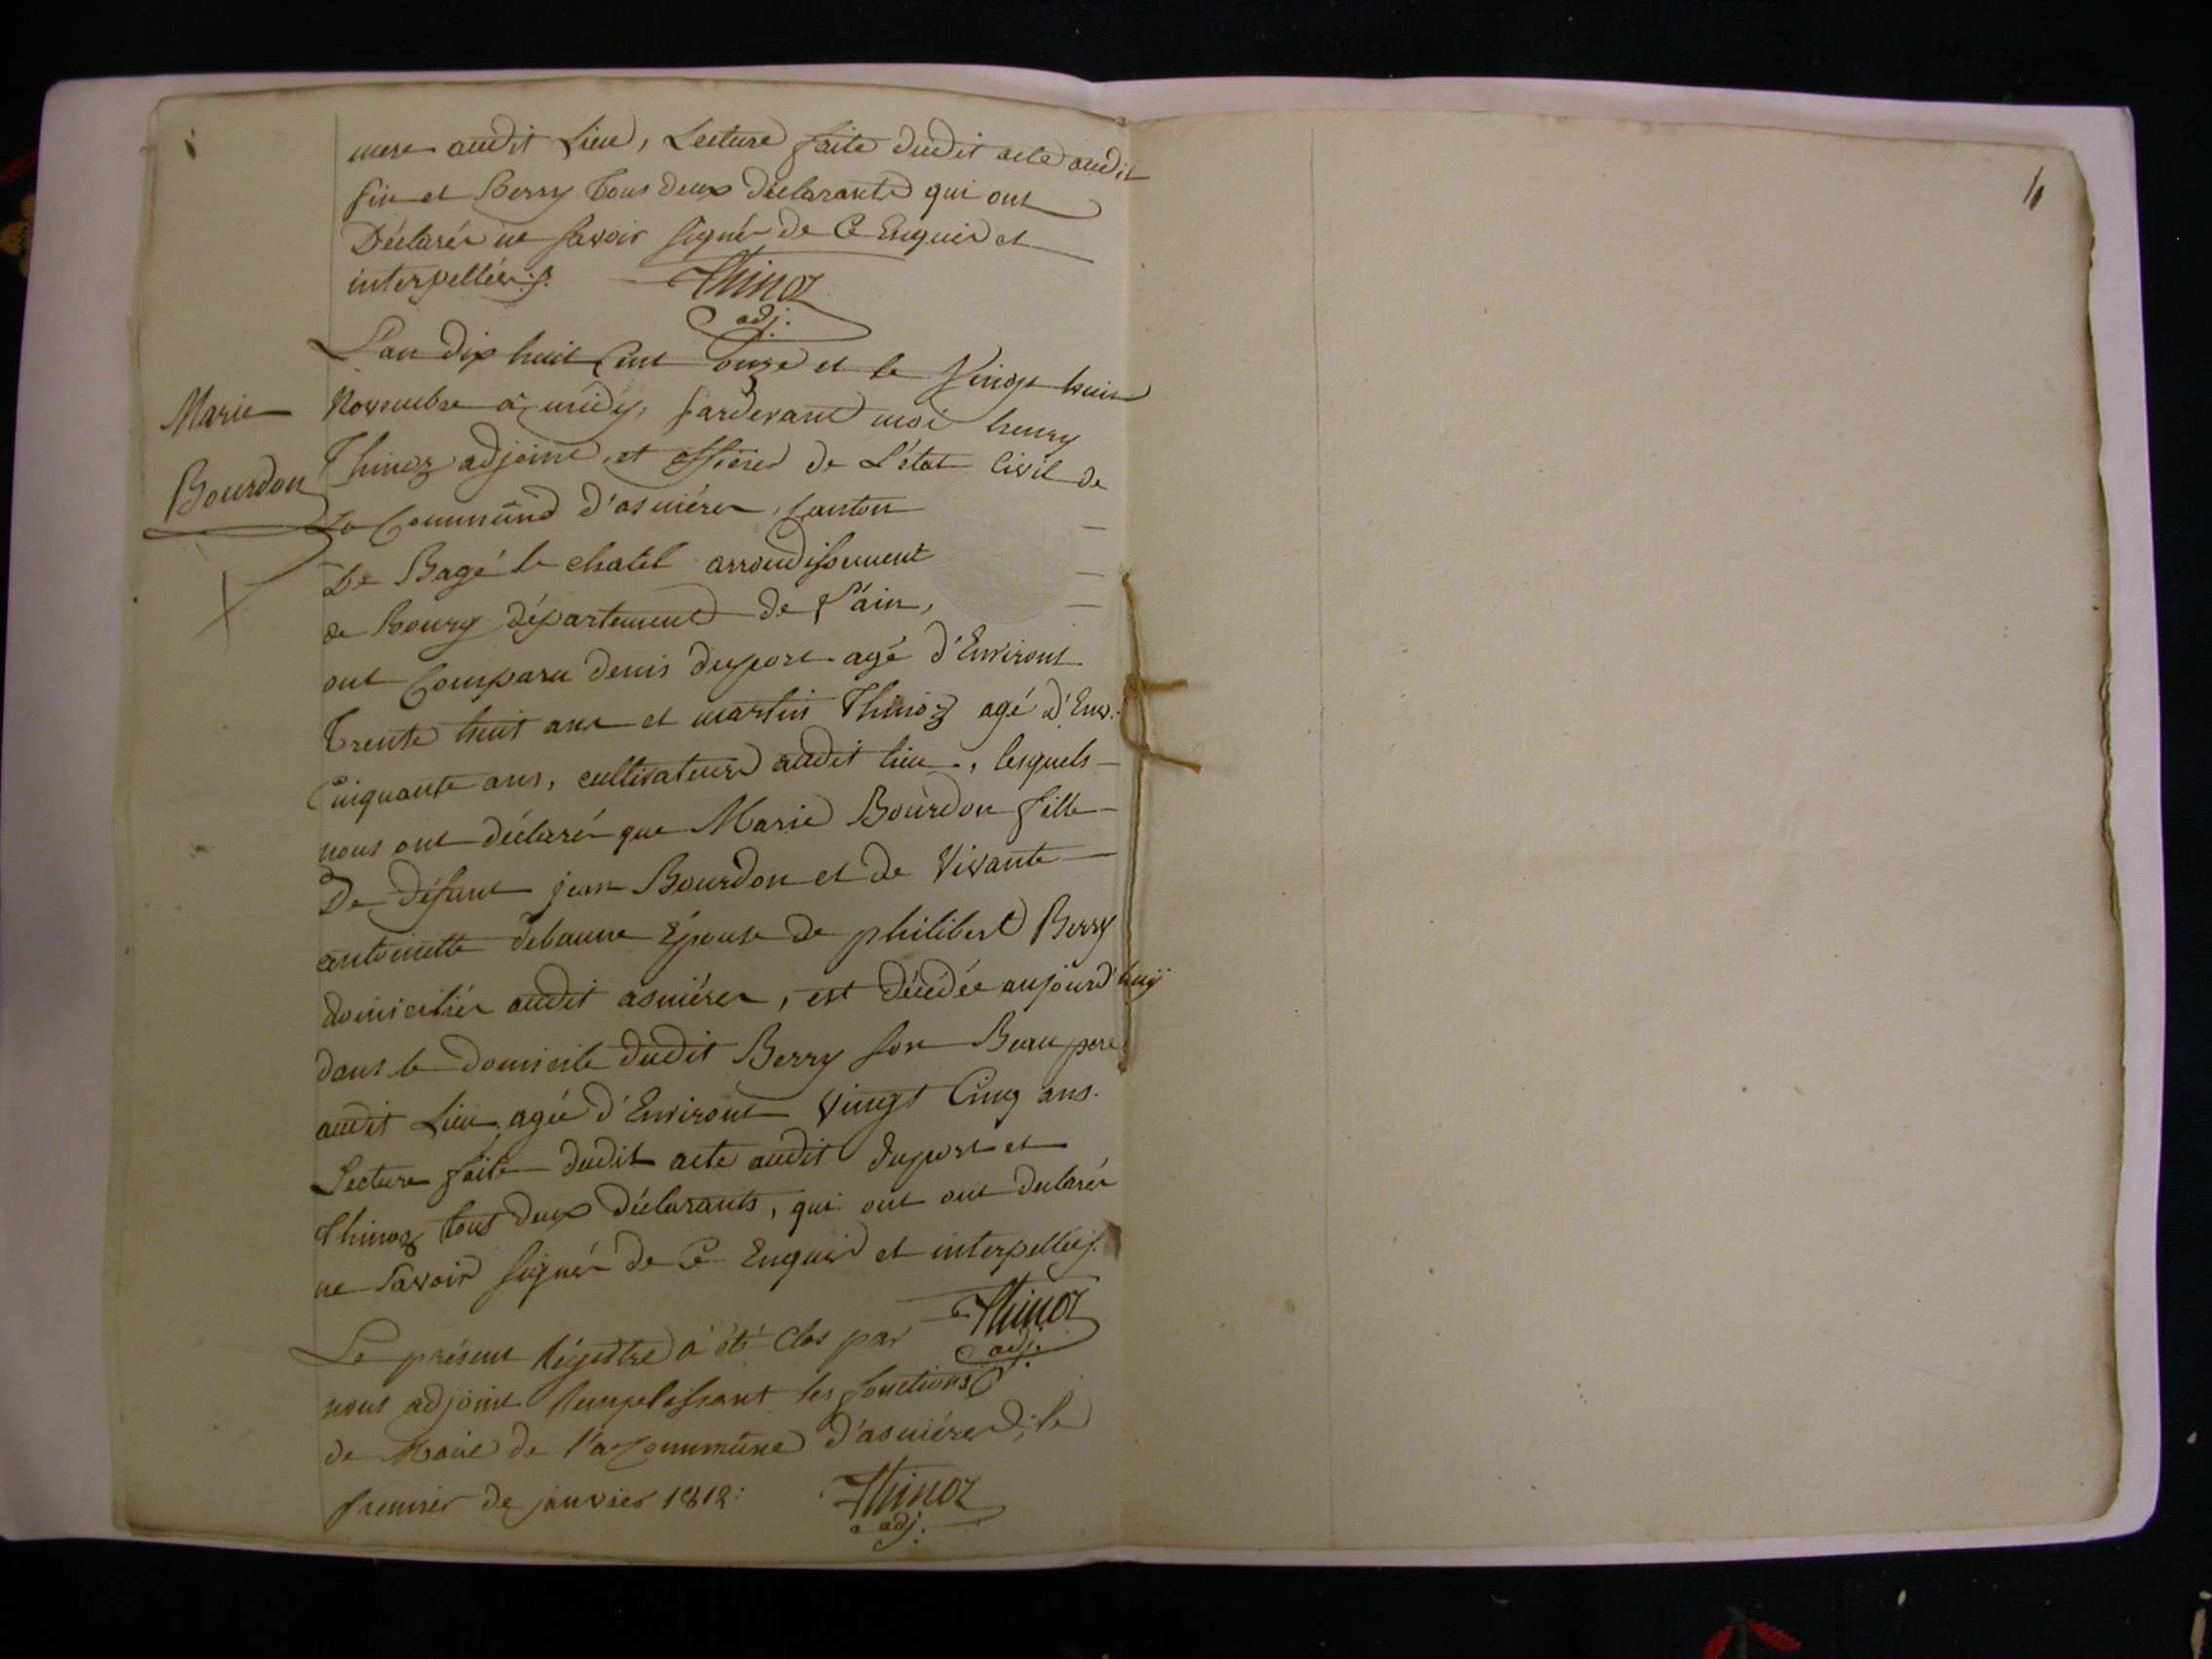 mere audit Lieu, Lecture faite dudit acte audit
fin et Berry tous deux déclarants qui ont
Déclarés ne savoir signér de Ce Enquis et
interpellées.
Thinoz
adj.
L'an dix huit Cent onze et le Vingt huit
Marie
Novembre à midy, pardevant moi henry
Bourdon
Thinoz adjoint, et officier de L'état Civil de
La Commune d'asniéres, Canton
De Bagé le chatel arrondissement
de Bourg département de l'ain,
ont Comparu denis duport agé d'Environt
Trente huit ans et martin Thinoz agé d'Env.
Cinquante ans, cultivateurs audit lieu, lesquels
nous ont déclarés que Marie Bourdon fille
De défunt jean Bourdon et de Vivante
antoinette debaune Épouse de philibert Berry
domiciliés audit asniéres, est décédée aujourd'huy
dans le domicile dudit Berry son Beau pere
audit Lieu agée d'Environt Vingt Cinq ans.
Lecture faite dudit acte audit duport et
Thinoz tous deux déclarants, qui ont ont declarés
ne savoir signér de Ce Enquis et interpellés.
Thinoz
adj.
Le présent Régistre à été clos par
nous adjoint Remplissant les fonctions
de Maire de l'a Commune d'asniéres, le
premier de janvier 1812:
Thinoz
adj.